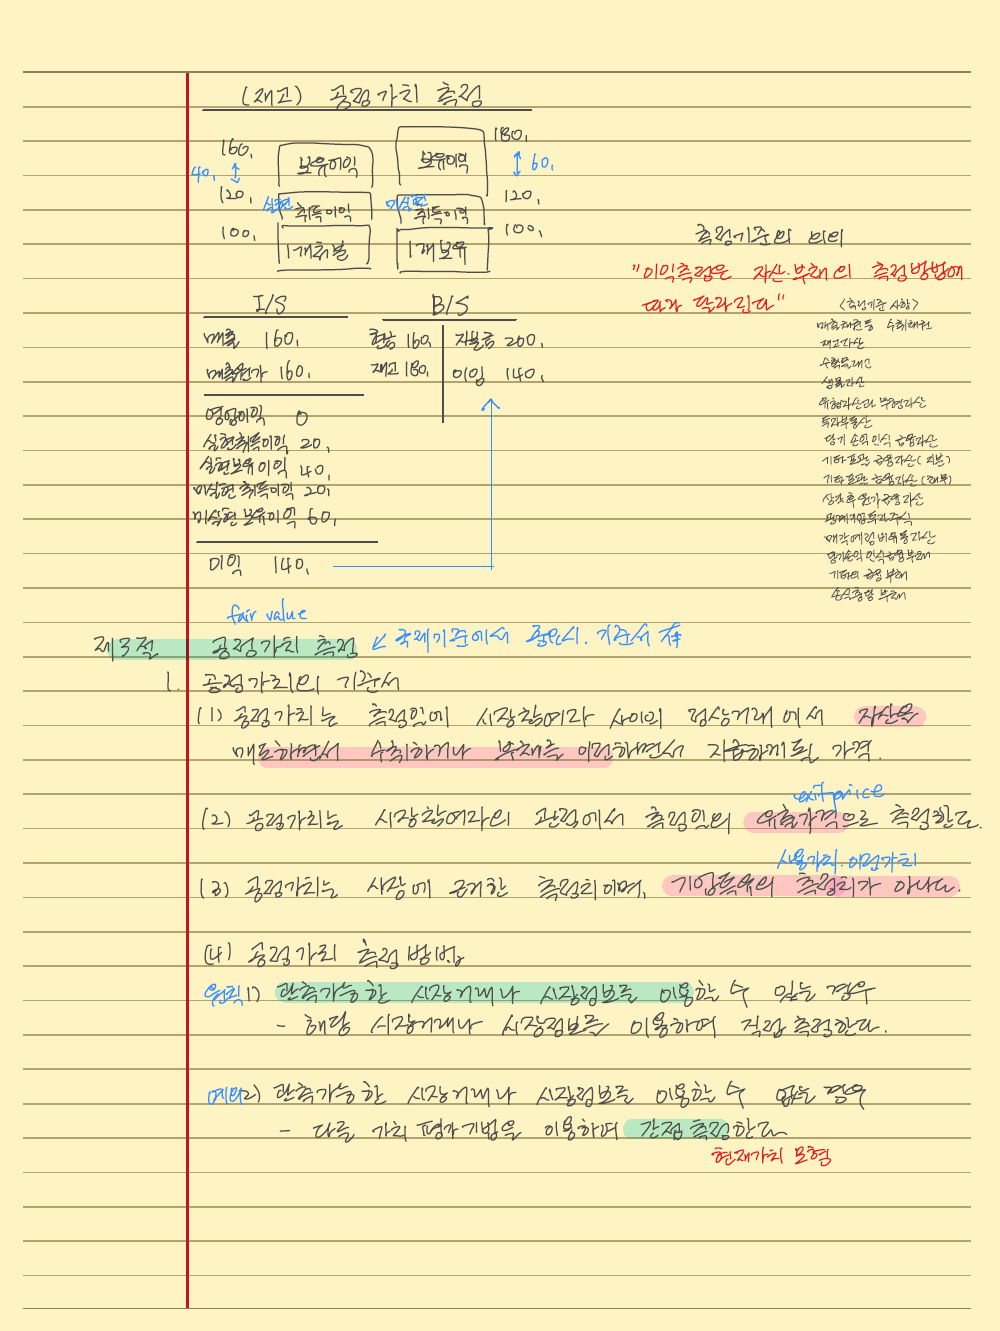 (재고) 공정가치 측정
160,
180,
보유이익
보유이익
40,
60,
120,
120,
실현
취득이익
미실현
취득이익
100,
100,
1개처분
1개보유
측정기준의 의의
"이익측정은 자산·부채의 측정방법에
따라 달라진다"
I/S
B/S
매출 160,
현금 160,
자본금 200,
매출원가 160,
재고 180,
이익 140,
영업이익 0
실현취득이익 20,
실현보유이익 40,
미실현 취득이익 20,
미실현 보유이익 60,
이익 140,
<측정기준 사항>
매출채권 등 수취채권
재고자산
수확물재고
생물자산
유형자산과 무형자산
투자부동산
당기 손익 인식 금융자산
기타포괄 금융자산 (지분)
기타포괄 금융자산 (채무)
상각후원가 금융자산
관계기업투자주식
매각예정비유동자산
당기손익인식금융부채
기타의 금융부채
손실충당부채
fair value
제3절 공정가치 측정 ↙ 국제기준에서 중요시. 기준서 存
1. 공정가치의 기준서
(1) 공정가치는 측정일에 시장참여자 사이의 정상거래에서 자산을
매도하면서 수취하거나 부채를 이전하면서 지급하게 될 가격.
exit price
(2) 공정가치는 시장참여자의 관점에서 측정일의 유출가격으로 측정한다.
사용가치. 이행가치
(3) 공정가치는 시장에 근거한 측정치이며, 기업특유의 측정치가 아니다.
(4) 공정가치 측정방법
원칙 1) 관측가능한 시장거래나 시장정보를 이용할 수 있는 경우
- 해당 시장거래나 시장정보를 이용하여 직접 측정한다.
예외 2) 관측가능한 시장거래나 시장정보를 이용할 수 없는 경우
- 다른 가치평가기법을 이용하여 간접 측정한다
현재가치 모형